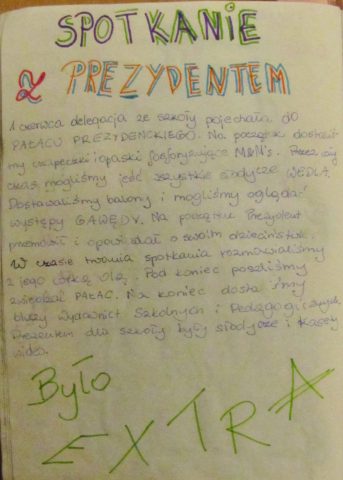 SPOTKANIE
z PREZYDENTEM
1 czerwca delegacja ze szkoły pojechała do
PAŁACU PREZYDENCKIEGO. Na początek dostaliś-
my czapeczki i opaski fosforyzujące M&N's. Przez cały
czas mogliśmy jeść wszystkie słodycze WEDLA.
Dostawaliśmy balony i mogliśmy oglądać
występy GAWĘDY. Na początku Prezydent
przemówił i opowiadał o swoim dzieciństwie.
W czasie trwania spotkania rozmawialiśmy
z jego córką OLĄ. Pod koniec poszliśmy
zwiedzać PAŁAC. Na koniec dostaliśmy
bluzy Wydawnictw Szkolnych i Pedagogicznych.
Prezentem dla szkoły były słodycze i kasety
wideo.
Było
EXTRA